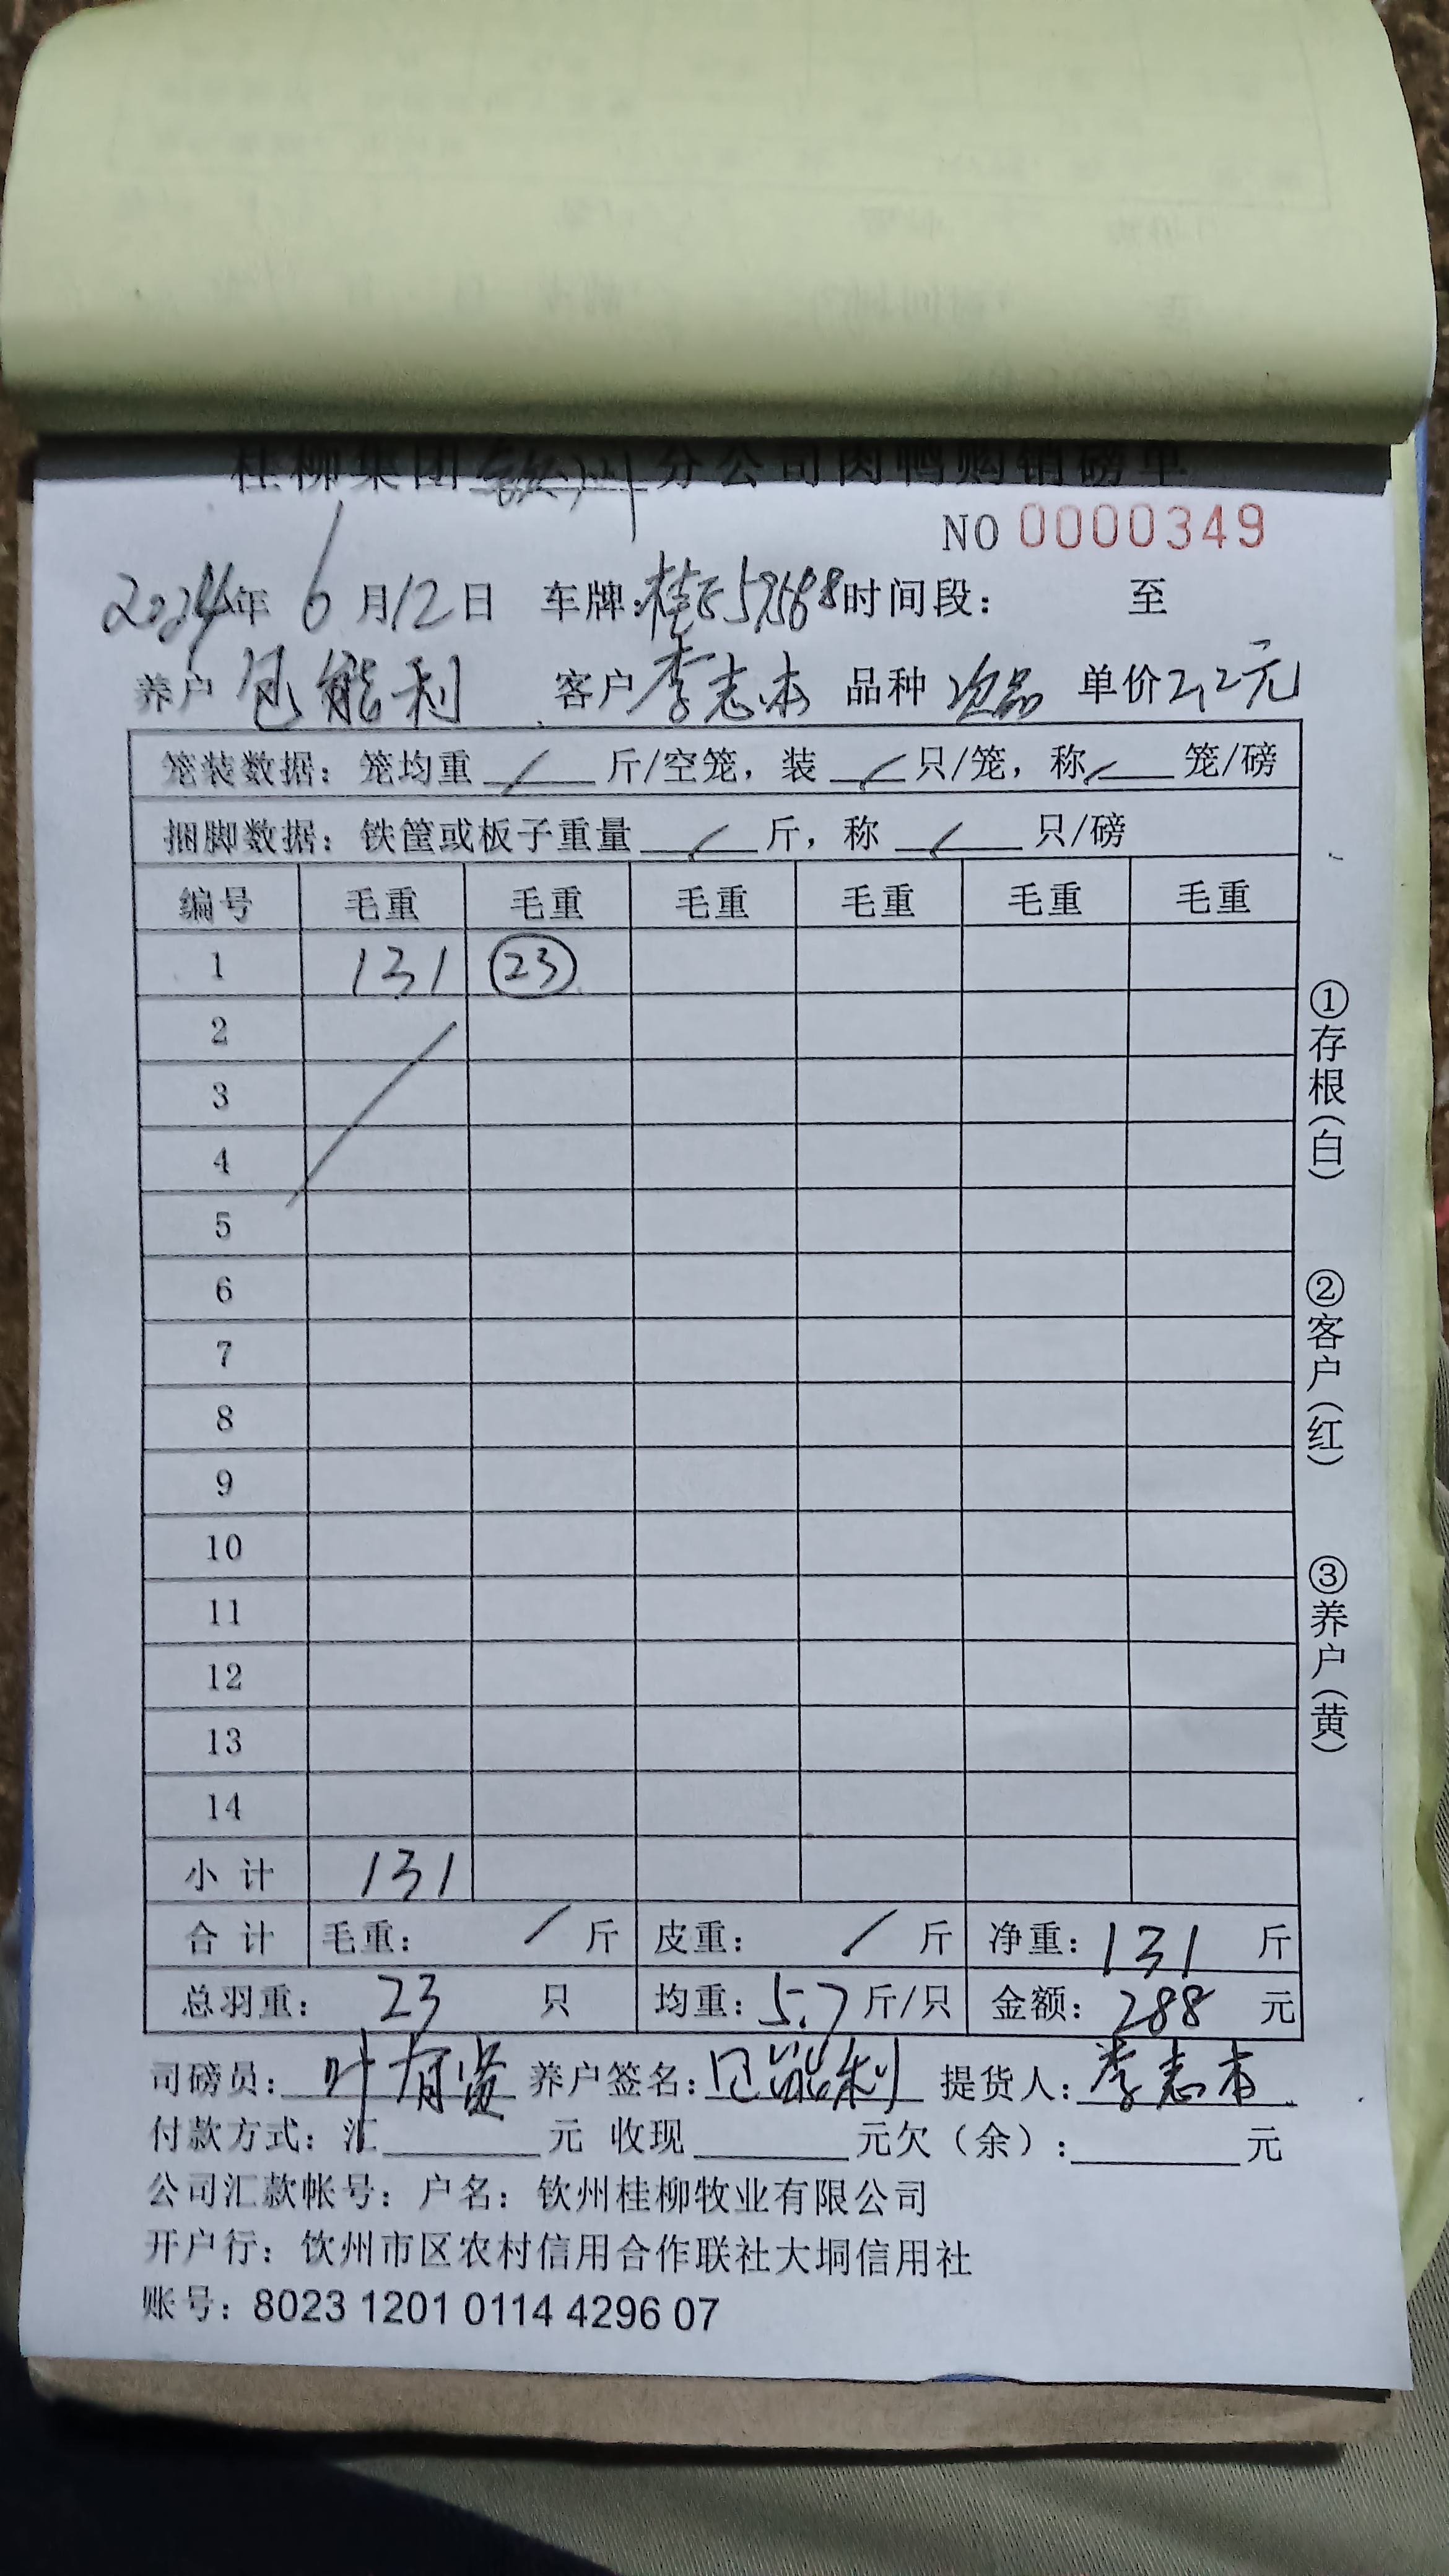 桂柳集团钦州分公司肉鸭购销磅单
NO 0000349
2024年 6月12日 车牌: 时间段: 至
养户 包能利 客户 李志本 品种 次品 单价2.2元
笼装数据: 笼均重 / 斤/空笼, 装 / 只/笼, 称 / 笼/磅
捆脚数据: 铁筐或板子重量 / 斤, 称 / 只/磅
编号 毛重 毛重 毛重 毛重 毛重 毛重
1 131 23
2
3
4
5
6
7
8
9
10
11
12
13
14
小计 131
合计 毛重: / 斤 皮重: / 斤 净重: 131 斤
总羽重: 23 只 均重: 5.7 斤/只 金额: 288 元
司磅员: 叶有贤 养户签名: 包能利 提货人: 李志本
付款方式: 汇 元 收现 元欠(余): 元
公司汇款帐号: 户名: 钦州桂柳牧业有限公司
开户行: 钦州市区农村信用合作联社大垌信用社
账号: 8023 1201 0114 4296 07
①存根(白)
②客户(红)
③养户(黄)